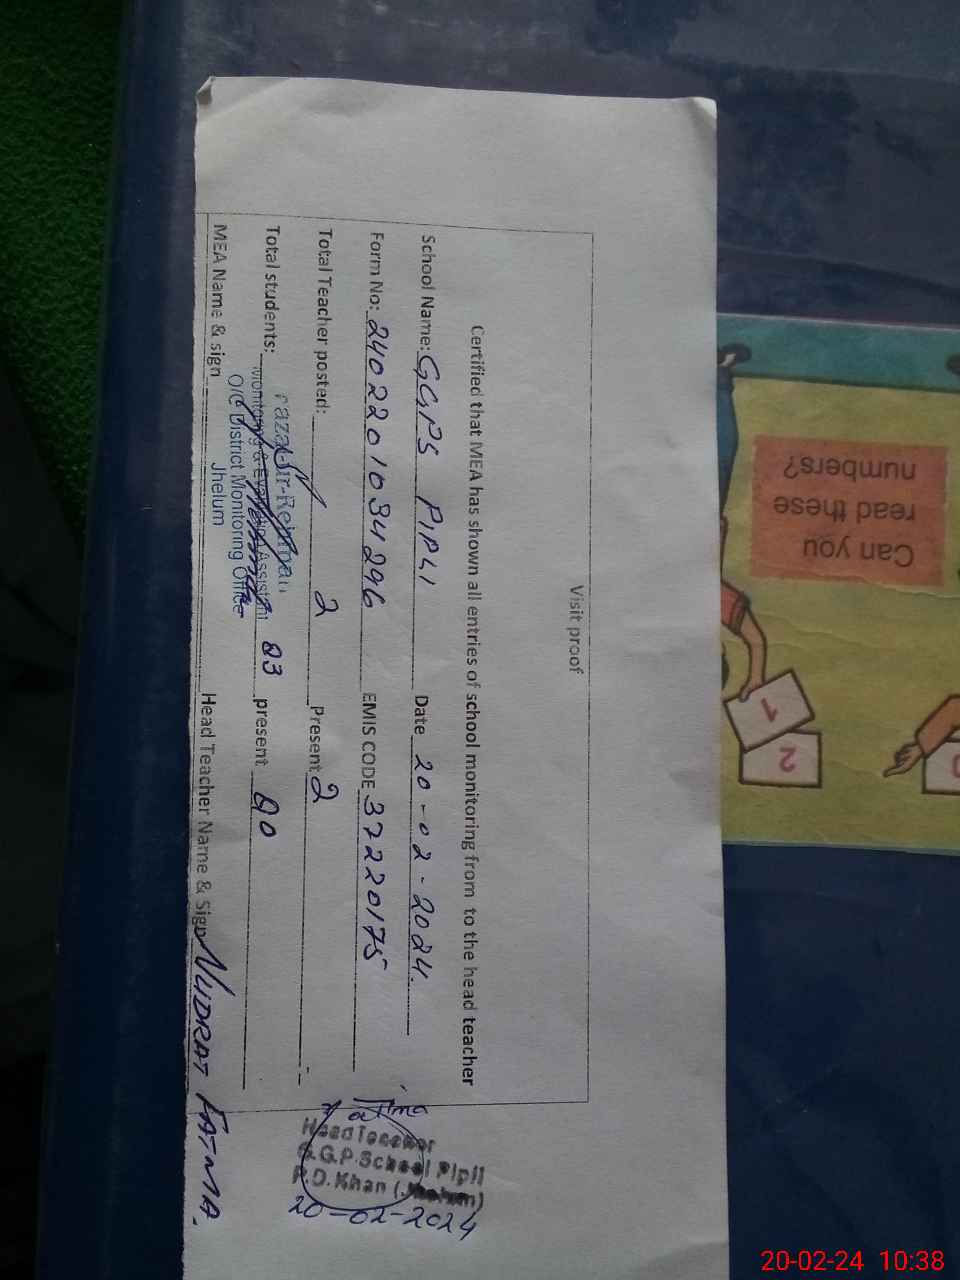 Visit proof
Certified that MEA has shown all entries of school monitoring from to the head teacher
School Name: GGPS PIPLI Date 20-02-2024.
Form No: 2402201034296 EMIS CODE 37220175
Total Teacher posted: 2 Present 2
Total students: 23 present 20
MEA Name & sign Head Teacher Name & Sign NUDRAT FATMA.
Monitoring & Evaluation Assistant
O/O District Monitoring Office
Jhelum
Head Teacher
G.G.P.School Pipli
P.D.Khan (Jhelum)
20-02-2024
Can you
read these
numbers?
1
2
20-02-24 10:38